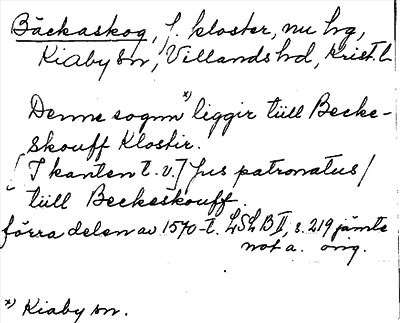 Bäckaskog, f. kloster, nu hg,
Kiaby sn, Villands hd, Krist. l.
Denne sognn x) liggir tiill Becke-
skouff Klostir.
[I kanten t. v.] Jus patronatus/
tiill Beckeskouff.
förra delen av 1570-t. LSLB II, s. 219 jämte
not a. orig.
x) Kiaby sn.